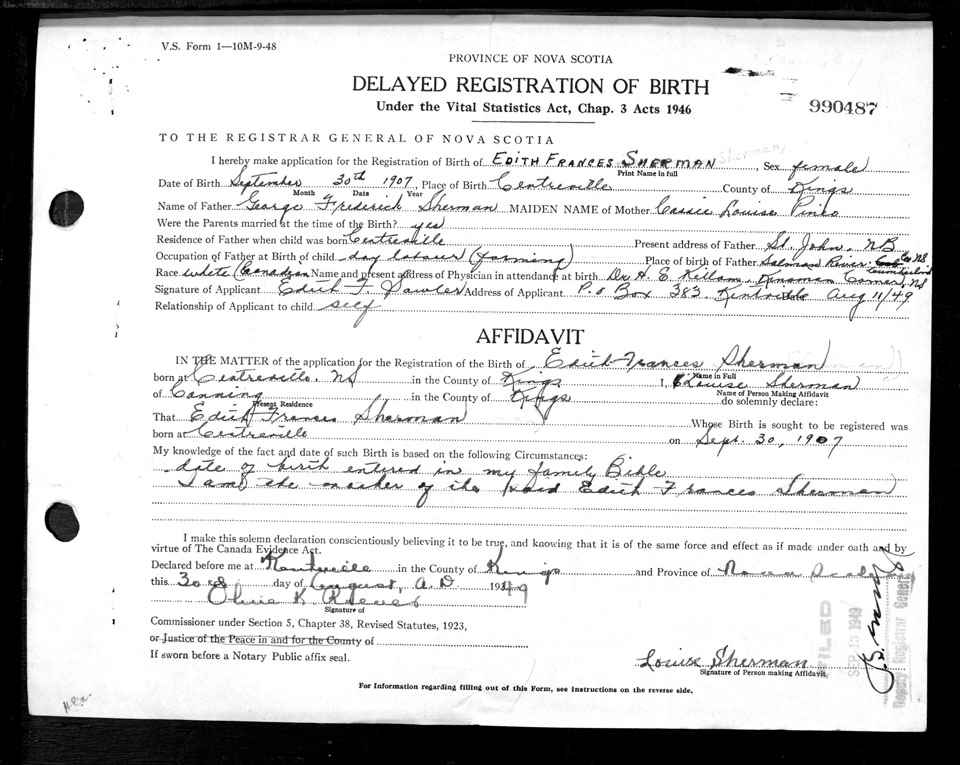 V.S. Form 1—10M-9-48
PROVINCE OF NOVA SCOTIA
DELAYED REGISTRATION OF BIRTH
Under the Vital Statistics Act, Chap. 3 Acts 1946
990487
TO THE REGISTRAR GENERAL OF NOVA SCOTIA
(Sherman)
I hereby make application for the Registration of Birth of EDITH FRANCES SHERMAN, Sex female
Print Name in full
Date of Birth September 30th 1907, Place of Birth Centreville County of Kings
Month Date Year
Name of Father George Frederick Sherman MAIDEN NAME of Mother Cassie Louise Pineo
Were the Parents married at the time of the Birth? yes
Residence of Father when child was born Centreville Present address of Father St. John, NB
Occupation of Father at Birth of child day labourer (farming) Place of birth of Father Salmon River, Co NS
Race white (Canadian Name and present address of Physician in attendance at birth Dr. H. E. Killam, Kinsman Corner, NS
Signature of Applicant Edith F. Lawler Address of Applicant P.O Box 383, Kentville Date Aug 11/49
Relationship of Applicant to child self
AFFIDAVIT
IN THE MATTER of the application for the Registration of the Birth of Edith Frances Sherman
Name in Full
born at Centreville, NS in the County of Kings I, Louise Sherman
Name of Person Making Affidavit
of Canning in the County of Kings do solemnly declare:
Present Residence
That Edith Frances Sherman Whose Birth is sought to be registered was
born at Centreville on Sept. 30, 1907
My knowledge of the fact and date of such Birth is based on the following Circumstances:
date of birth entered in my family Bible
I am the mother of the said Edith Frances Sherman
I make this solemn declaration conscientiously believing it to be true, and knowing that it is of the same force and effect as if made under oath and by
virtue of The Canada Evidence Act.
Declared before me at Kentville in the County of Kings and Province of Nova Scotia
this 30th day of August, A.D. 1949
Olivia K. Reeves
Signature of
Commissioner under Section 5, Chapter 38, Revised Statutes, 1923,
or Justice of the Peace in and for the County of
If sworn before a Notary Public affix seal.
Louise Sherman
Signature of Person making Affidavit
FILED
SEP 13 1949
Deputy Registrar General
For Information regarding filling out of this Form, see instructions on the reverse side.